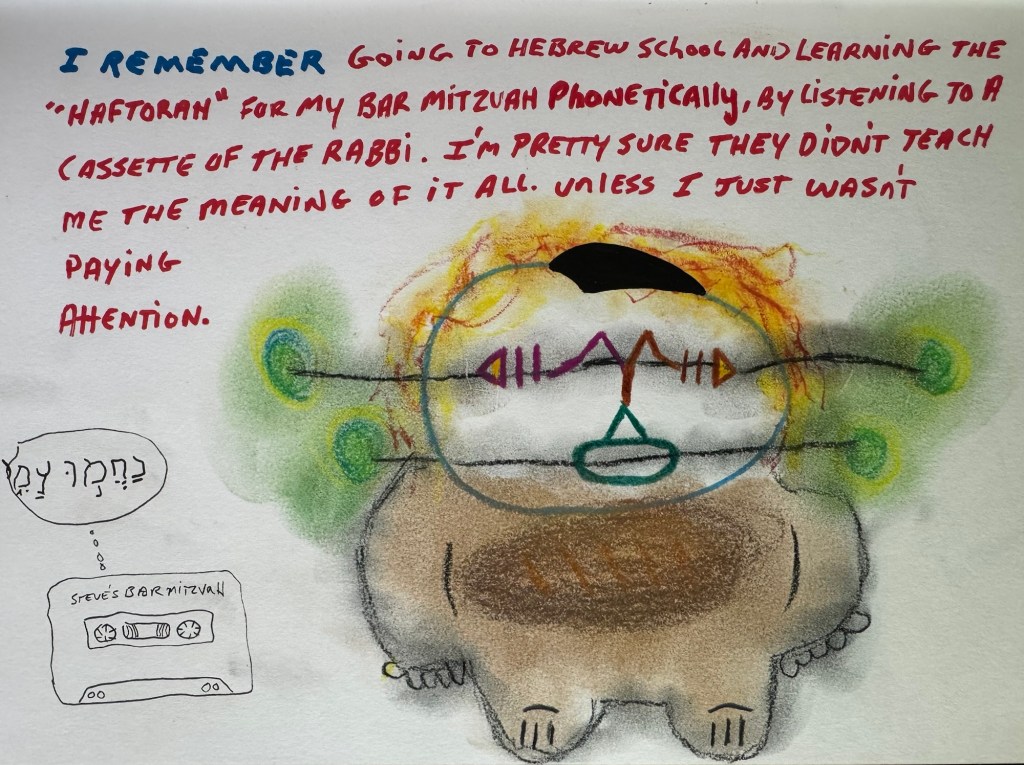 I REMEMBER GOING TO HEBREW SCHOOL AND LEARNING THE
"HAFTORAH" FOR MY BAR MITZVAH PHONETICALLY, BY LISTENING TO A
CASSETTE OF THE RABBI. I'M PRETTY SURE THEY DIDN'T TEACH
ME THE MEANING OF IT ALL. UNLESS I JUST WASN'T
PAYING
ATTENTION.
נַחֲמוּ עַמִי
STEVE'S BAR MITZVAH